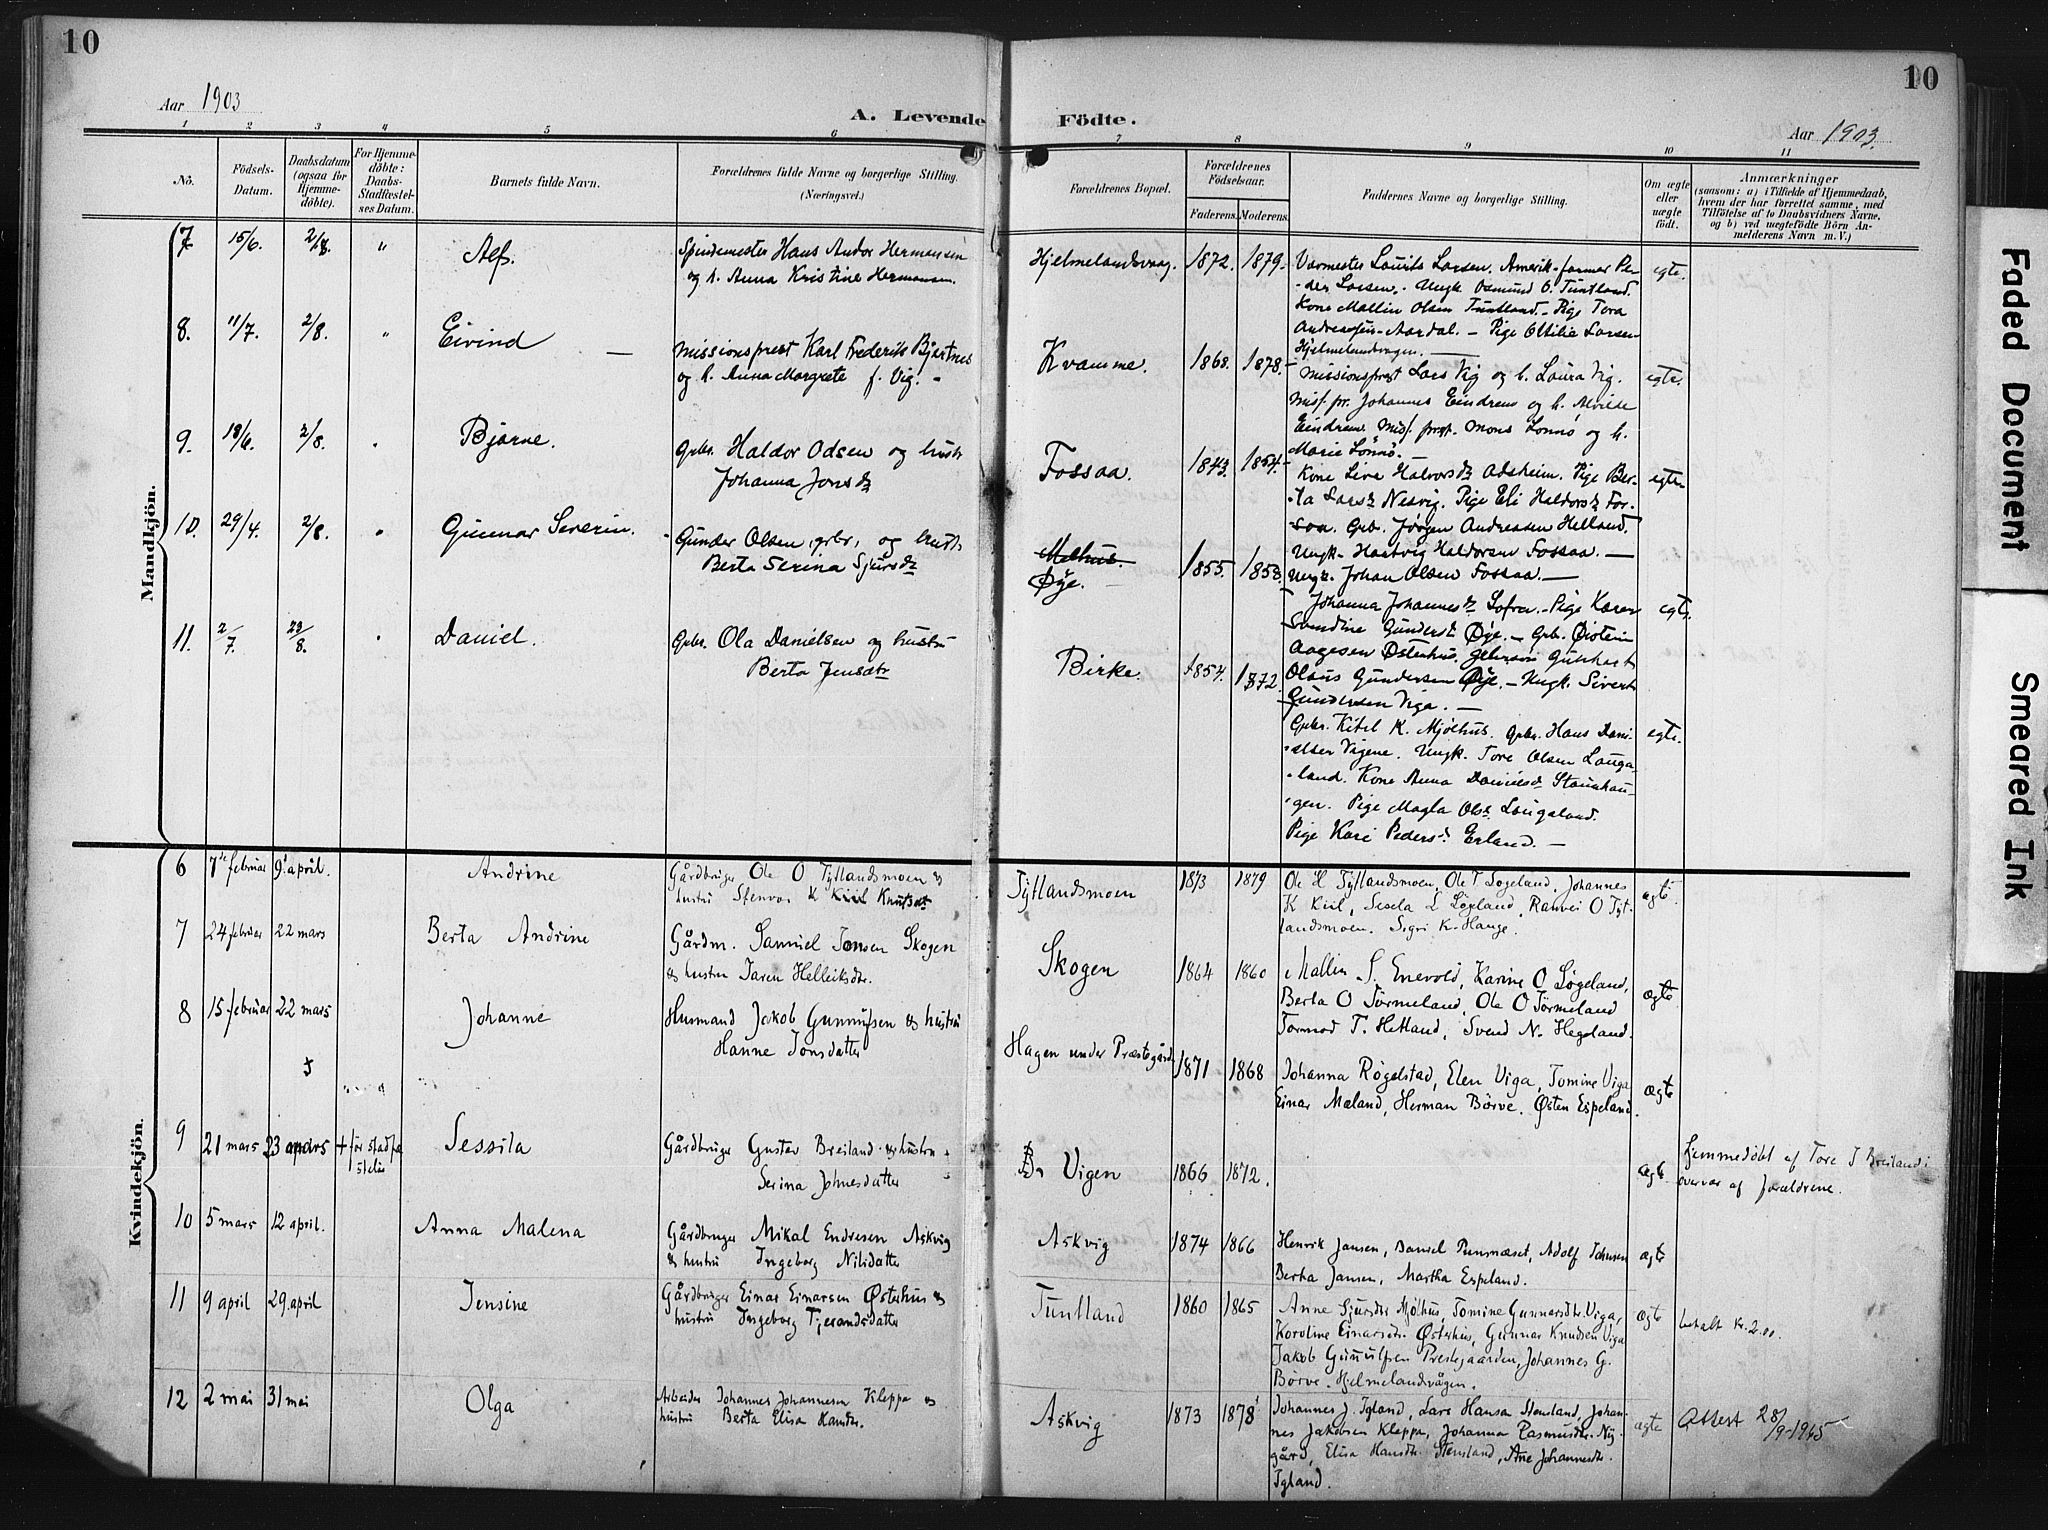 10
10
Aar 1903
A. Levende Födte.
Aar 1903.
1 2 3 4 5 6 7 8 9 10 11
No.
Födsels-Datum.
Daabsdatum (ogsaa for Hjemme-döbte).
For Hjemme-döbte: Daabs-Stadfæstel-ses Datum.
Barnets fulde Navn.
Forældrenes fulde Navne og borgerlige Stilling.
(Næringsvei.)
Forældrenes Bopæl.
Forældrenes Födselsaar.
Faderens. Moderens.
Faddernes Navne og borgerlige Stilling.
Om ægte eller uægte födt.
Anmærkninger
(saasom: a) i Tilfælde af Hjemmedaab,
hvem der har forrettet samme, med
Tilföielse af to Daabsvidners Navne,
og b) ved uægtefödte Börn An-
melderens Navn m. V.)
Mandkjön.
7. 15/6. 2/8. " Alf. Hans Andor Hermensen
og h. Anna Kristine Hermensen.
Hjelmelandsvaag. 1872. 1879. Laurits Larsen. Amerik. farmer Pe-
der Larsen. Ungk. Osmund O. Tuntland.
Kone Mallin Olsen Tuntland. Pige Tora
Andreasen Aardal. — Pige Ottilia Larsen
Hjelmelandsvagen. —
egte.
8. 11/7. 2/8. " Eivind — Missionsprest Karl Frederik Bjertnes
og h. Anna Margrete f. Vig. -
Kvamme. 1868. 1878. Missionsprest Lars Vig og h. Laura Vig.
Misj. pr. Johannes Eindrem og h. Alvilde
Eindrem Misj. prest. Mons Lönnö og h.
Marie Lönnö. —
egte.
9. 18/6. 2/8. Bjarne. Gbr. Haldor Odsen og hustr
Johanna Jonsd.
Fossaa. 1843. 1854. Kone Live Halvorsd. Adsheim. Pige Ber-
ta Larsd. Nesvig. Pige Eli Haldorsd. Fos-
saa. Grb. Jørgen Andreasen Helland.
Ungk. Hartvig Haldorsen Fossaa. —
Ungk. Johan Olsen Fossaa. —
egte.
10. 29/4. 2/8. Gunnar Severin. Gunder Olsen, grbr, og hustr.
Berta Serina Sjursd.
Melhus.
Øye. 1855. 1858. Johanna Johannesd. Lofra. Pige Karen
Svendine Gundersd. Øye. — Grb. Øistein
Aagesen Østerhus.
Olaus Gundersen Øye. — Ungk. Sivert
Gundersen Viga. —
egte.
11. 2/7. 23/8. Daniel. Gbr. Ola Danielsen og hustru
Berta Jensdtr
Birke. 1854. 1872. Gbr. Kitel K. Mjølhus. Gbr. Hans Dani-
elsen Vigene. Ungk. Tore Olsen Lauga-
land. Kone Anna Danielsd.
gen. Pige Magla Olsd. Laugaland.
Pige Kari Pedersd. Erland. —
egte.
Kvindekjön.
6 7de februar 9. april. Andrine Gårdbruger Ole O Tytlandsmoen &
hustru Stenvor K Kiil Knutsdtr
Tytlandsmoen 1873 1879 Ole H Tytlandsmoen, Ole T Søgeland, Johannes
K Kiil, Sesela L Søgeland, Ranvei O Tyt-
landsmoen. Sigri K. Hauge.
ægte
7 24 februar 22 mars Berta Andrine Gårdm. Samuel Jonsen Skogen
& hustru Taren Helleiksdtr.
Skogen 1864 1860 Mallin S. Enevold, Karine O Søgeland,
Berta O Tørmeland, Ole O Tørmeland
Tormod T. Hetland, Svend N. Hegeland.
ægte
8 15 februar 22 mars Johanne Husmand Jakob Gunnufsen & hustru
Hanne Jonsdatter
Hagen under Præstegård 1871 1868 Johanna Røgelstad, Elen Viga, Tomine Viga
Einar Mæland, Herman Börve. Østen Espeland.
ægte
9 21 mars 23 mars + før stadfæstelse Sessila Gårdbruger Gustav Breiland & hustru
Serina Johnesdatter
Vigen 1866 1872. ægte Hjemmedöbt af Tore T Breiland i
overvær af forældrene.
10 5 mars 12 april. Anna Malena Gårdbruger Mikal Endresen Askvig
& hustru Ingeborg Nilsdatter
Askvig 1874 1866 Henrik Jansen, Daniel Punsnæset, Adolf Johnsen
Berta Jansen, Martha Espeland.
ægte
11 9 april 29. april Jensine Gårdbruger Einar Einarsen Østerhus &
hustru Ingeborg Tjerandsdatter
Tuntland 1860 1865 Anne Sjursdtr Mjølhus, Tomine Gunnarsdtr. Viga,
Karoline Einarsdtr. Østerhus, Gunnar Knudsen Viga
Jakob Gunnulfsen Prestegaarden, Johannes G.
Börve. Hjelmelandsvågen.
ægte betalt Kr. 2.00.
12 2 mai 31 mai Olga Arbeider Johannes Johannesen Kleppa &
hustru Berta Elisa Hansdtr.
Askvig 1873 1878 Johannes J. Igland, Lars Hansen Stensland, Johan-
nes Jakobsen Kleppa, Johanna Rasmusdtr. Ny-
gård, Elisa Hansdtr. Stensland, Ane Johannesdtr.
Igland.
ægte Attest 28/9-1965
Faded Document
Smeared Ink